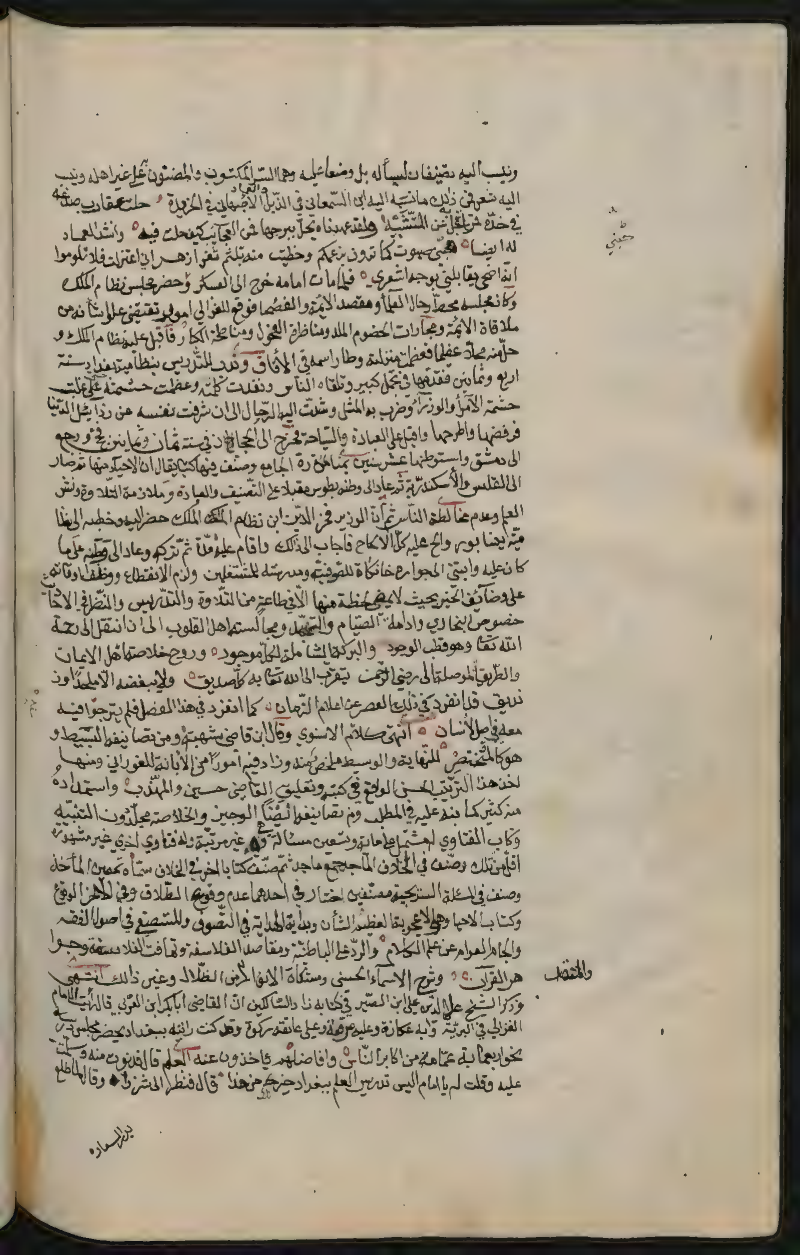 ونسب اليه تصنيفان ليسا له بل وضعا عليه وهما السر المكتوب والمضنون على غير اهله ونسب
اليه شعر فمن ذلك ما نسبه اليه ابن السمعاني في الذيل والعماد الاصبهاني في الخريدة حلت عقارب صدغه
في خده قمر يجل عن التشبيه ولقد عهدناه يحل ببرجها فمن العجائب كيف حلت فيه وانشد العماد
له ايضا هبني صبوت كما ترون بزعمكم وحظيت منه بلثم ثغر ازهر اني اعتزلت فلا تلوموا
انه اضحى يقابلني بوجه اشعري فلما مات امامه خرج الى العسكر وحضر مجلس نظام الملك
وكان مجلسه محط رحال العلماء ومقصد الائمة والفضلاء فوقع للغزالي امور تقتضي علو شانه من
ملاقاة الائمة ومجارات الخصوم اللد ومناظرة الفحول ومناطحة الكبار فاقبل عليه نظام الملك و
حل منه محلا عظيما فعظمت منزلته وطار اسمه في الآفاق وندب للتدريس بنظامية بغداد سنة
اربع وثمانين فقدمها في تجمل كبير وتلقاه الناس ونفذت كلمته وعظمت حشمته حتى غلبت
حشمة الامراء والوزراء وضرب به المثل وشدت اليه الرحال الى ان شرفت نفسه عن رذائل الدنيا
فرفضها واطرحها واقبل على العبادة والسياحة فخرج الى الحجاز في سنة ثمان وثمانين فحج ورجع
الى دمشق واستوطنها عشر سنين بمنارة الجامع وصنف فيها كتبا يقال ان الاحياء منها ثم صار
الى القدس والاسكندرية ثم عاد الى وطنه بطوس مقبلا على التصنيف والعبادة وملازمة التلاوة ونشر
العلم وعدم مخالطة الناس ثم ان الوزير فخر الدين ابن نظام الملك حضر اليه وخطبه الى نظا
مية نيسابور والح عليه كل الالحاح فاجاب الى ذلك واقام عليه مدة ثم تركه وعاد الى وطنه على ما
كان عليه وابتنى الى جواره خانكاة للصوفية ومدرسة للمشتغلين ولزم الانقطاع ووظف اوقاته
على وظائف الخير بحيث لا يمضي لحظة منها الا في طاعة من التلاوة والتدريس والنظر في الاحاديث
خصوصا البخاري وادامة الصيام والتهجد ومجالسة اهل القلوب الى ان انتقل الى رحمة
الله تعالى وهو قطب الوجود والبركة الشاملة لكل موجود وروح خلاصة اهل الايمان
والطريق الموصلة الى رضى الرحمن يتقرب الى الله تعالى به كل صديق ولا يبغضه الا ملحد او
زنديق قد انفرد في ذلك العصر عن اعلام الزمان كما انفرد في هذا الفصل فلم يترجم فيه
معه في فصل الانسان انتهى كلام الاسنوي وقال ابن قاضي شهبة ومن تصانيفه البسيط و
هو كالمختصر للنهاية والوسيط ملخص منه وزاد فيه امورا من الابانة للفوراني ومنها
اخذ هذا الترتيب الحسن الواقع في كتبه وتعليق القاضي حسين والمهذب واستمداده
منه كثير كما نبه عليه في المطلب ومن تصانيفه ايضا الوجيز والخلاصة مجلد دون التنبيه
وكتاب الفتاوي له مشتمل على مائة وتسعين مسئلة غير مرتبة وله فتاوي اخرى غير مشهورة
اقل من تلك وصنف في الخلاف المآخذ جمع ماخذ ثم صنف كتابا آخر في الخلاف سماه تحصين المآخذ
وصنف في المسئلة السريجية مصنفين اختار في احدهما عدم وقوع الطلاق وفي الآخر الوقوع
وكتاب الاحياء وهو الاعجوبة العظيم الشان وبداية الهداية في التصوف والمستصفى في اصول الفقه
والجام العوام عن علم الكلام والرد على الباطنية ومقاصد الفلاسفة وتهافت الفلاسفة وجوا
هر القرآن وشرح الاسماء الحسنى ومشكاة الانوار والمنقذ من الضلال وغير ذلك انتهى
وذكر الشيخ علاء الدين علي ابن الصير في كتابه زاد السالكين ان القاضي ابا بكر ابن العربي قال رأيت الامام
الغزالي في البرية وبيده عكازة وعليه مرقعة وعلى عاتقه ركوة وقد كنت رايته ببغداد يحضر مجلس درسه
نحو اربعمائة عمامة من اكابر الناس وافاضلهم ياخذون عنه العلم قال فدنوت منه وسلمت
عليه وقلت له يا امام اليس تدريس العلم ببغداد خير من هذا قال فنظر الي شزرا وقال لما طلع
بدر السعادة